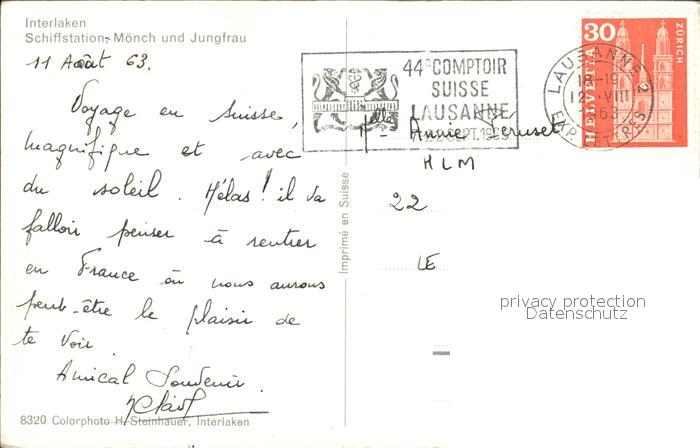 Interlaken
Schiffstation, Mönch und Jungfrau
11 Août 63.
Voyage en Suisse,
magnifique et avec
du soleil. Hélas! il va
falloir penser à rentrer
en France où nous aurons
peut-être le plaisir de
te voir.
Amical Souvenir.
8320 Colorphoto H. Steinhauer, Interlaken
Imprimé en Suisse
44e COMPTOIR
SUISSE
LAUSANNE
SEPT. 1963
LAUSANNE 2
18-19
12.VIII
63
EXP. LETTRES
30
HELVETIA
ZÜRICH
Melle Annie
HLM
22
LE
privacy protection
Datenschutz